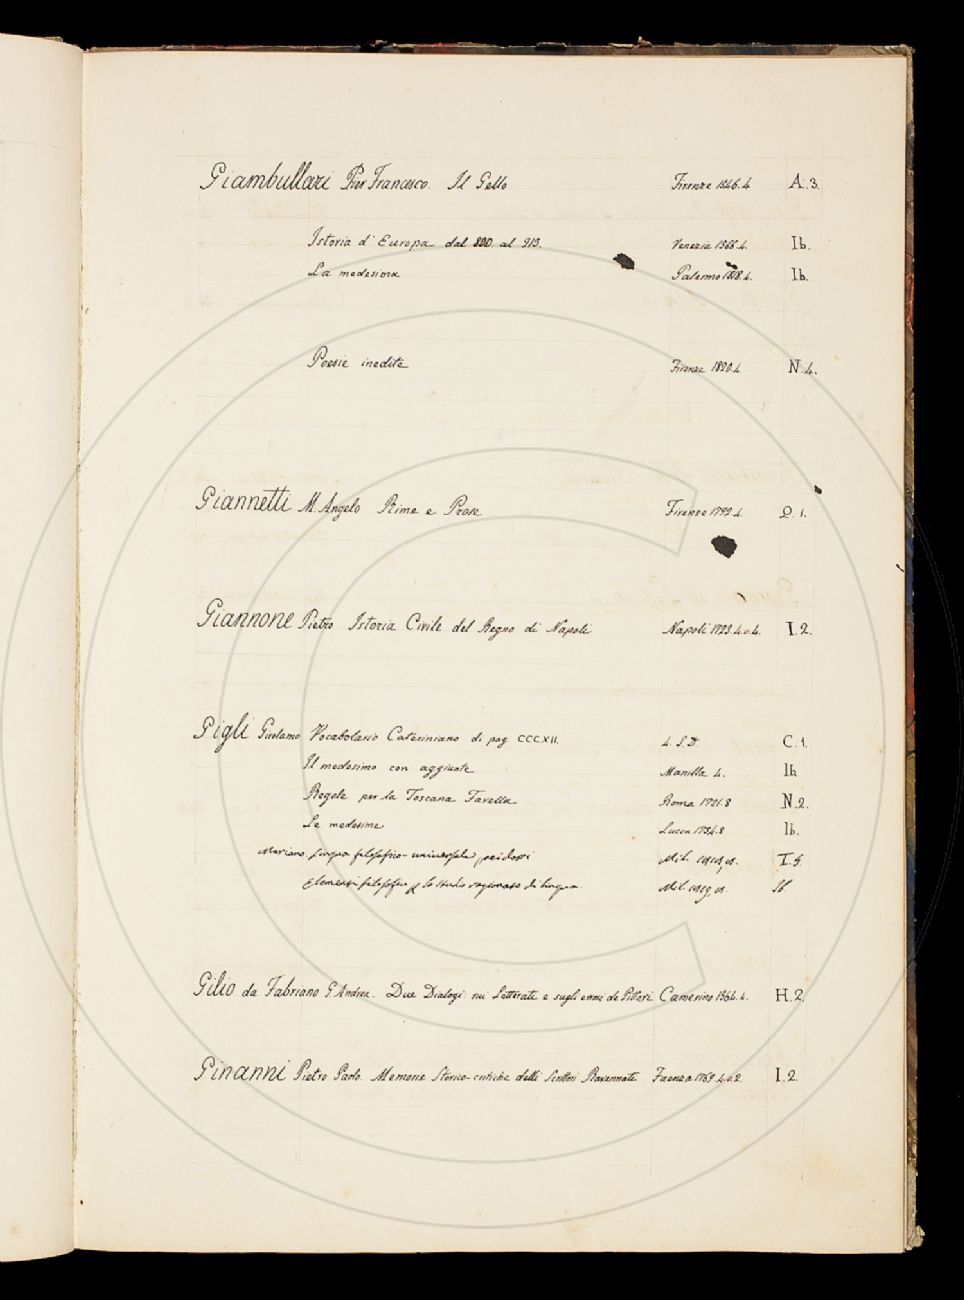 Giambullari Pier Francesco. Il Gello Firenze 1546.4 A.3.
Istoria d'Europa dal 800 al 913. Venezia 1566.4. Ib.
La medesima Palermo 1818.4. Ib.
Poesie inedite Firenze 1820.4 N.4.
Giannetti M. Angelo Rime e Prose Firenze 1792.4. O.1.
Giannone Pietro Istoria Civile del Regno di Napoli Napoli 1723.4.v.4. I.2.
Gigli Girolamo Vocabolario Cateriniano di pag CCCXII. 4. S.D. C.1.
Il medesimo con aggiunte Manilla 4. Ib
Regole per la Toscana Favella Roma 1721.8 N.2.
Le medesime Lucca 1734.8 Ib.
Mariano. Lingua filosofico-universale pei dotti Mil. T.5.
Elementi filosofici p lo studio ragionato di lingua Mil. Ib
Gilio da Fabriano G. Andrea. Due Dialogi sui Letterati e sugli errori de Pittori Camerino 1564.4. H.2.
Ginanni Pietro Paolo. Memorie Storico-critiche delli Scrittori Ravennati Faenza 1769.4.v.2. I.2.